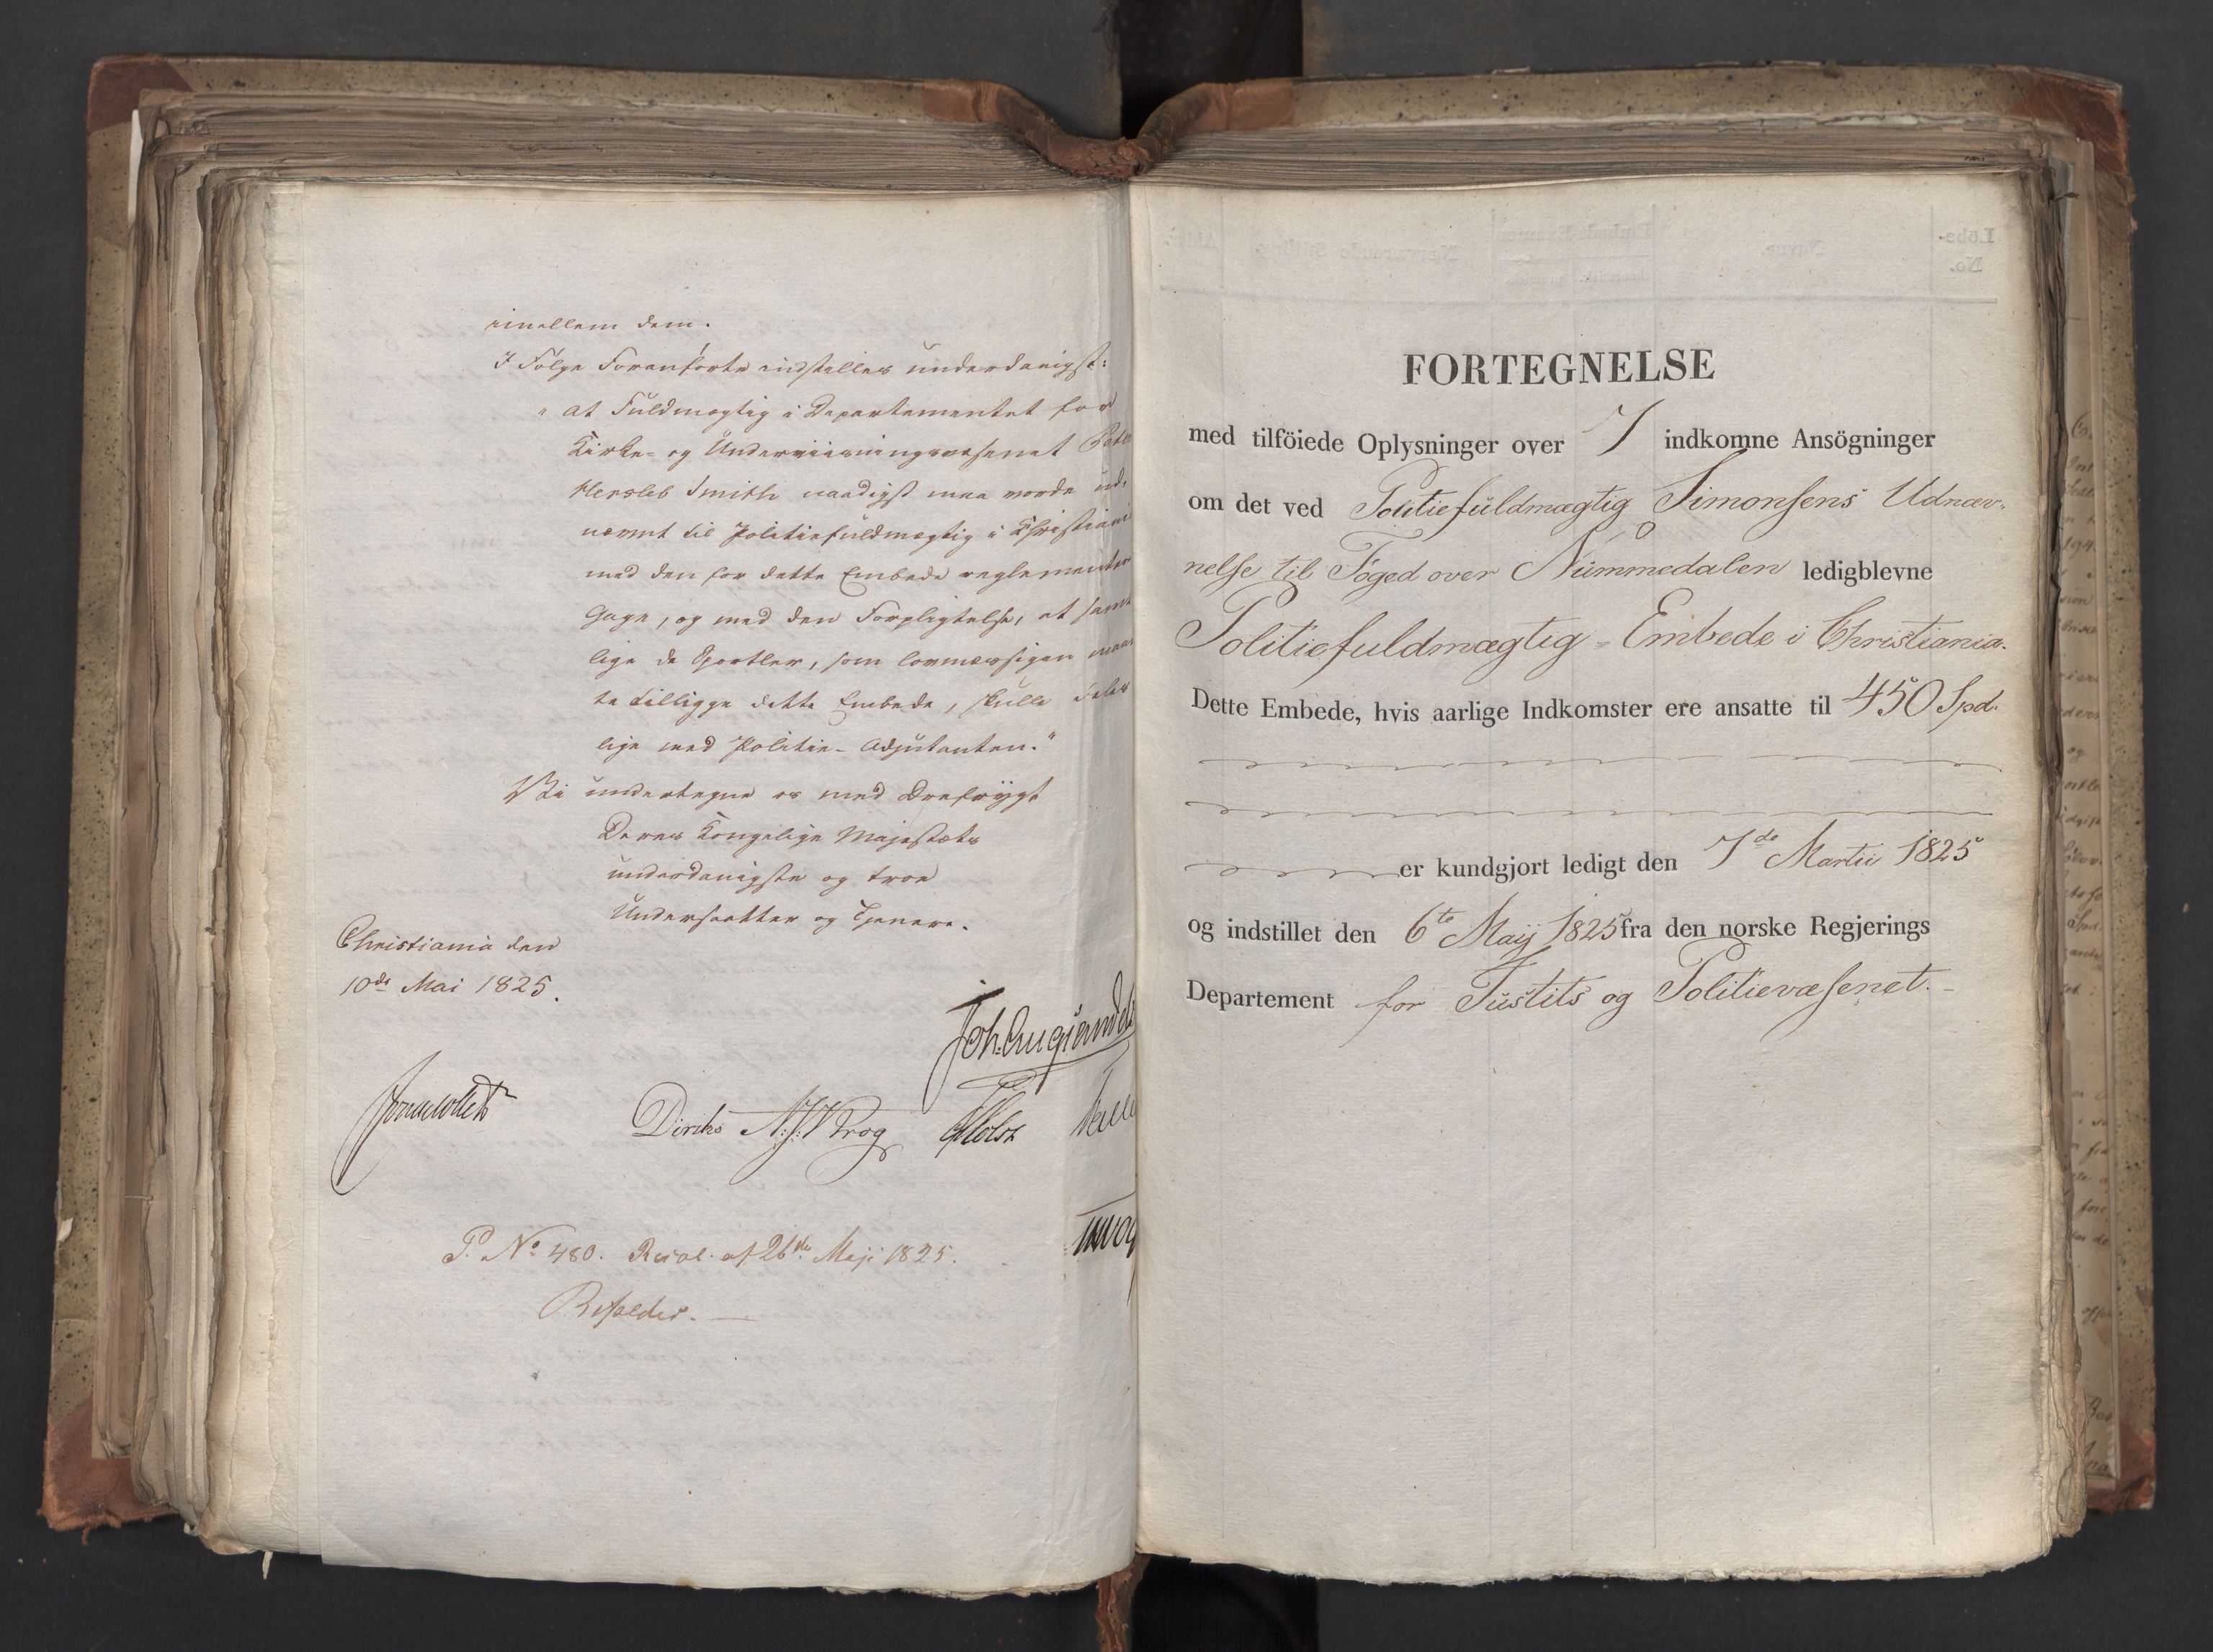 imellem dem.
I Følge Foranførte indstilles underdanigst:
" at Fuldmægtig i Departementet for
Kirke- og Underviisningsvæsenet
Hersleb Smith naadigst maa vorde ud-
nævnt til Politiefuldmægtig i Christiani
med den for dette Embede reglementer
Gage, og med den Forpligtelse, at samt
lige de Sportler, som lovmæssigen maat
te tilligge dette Embede, skulle deles
lige med Politie-Adjutanten."
Vi undertegne os med Ærefrygt
Deres Kongelige Majestæts
underdanigste og troe
Undersaatter og Tjenere.
Christiania den
10de Mai 1825.
Diriks
P. No 480. Resol. af 26de Maji 1825.
Bifaldes.
FORTEGNELSE
med tilföiede Oplysninger over 7 indkomne Ansögninger
om det ved Politiefuldmægtig Simonsens Udnæv-
nelse til Foged over Nummedalen ledigblevne
Politiefuldmægtig-Embede i Christiania.
Dette Embede, hvis aarlige Indkomster ere ansatte til 450 Spd.
er kundgjort ledigt den 7de Martii 1825
og indstillet den 6te Maij 1825 fra den norske Regjerings
Departement for Justits og Politievæsenet.